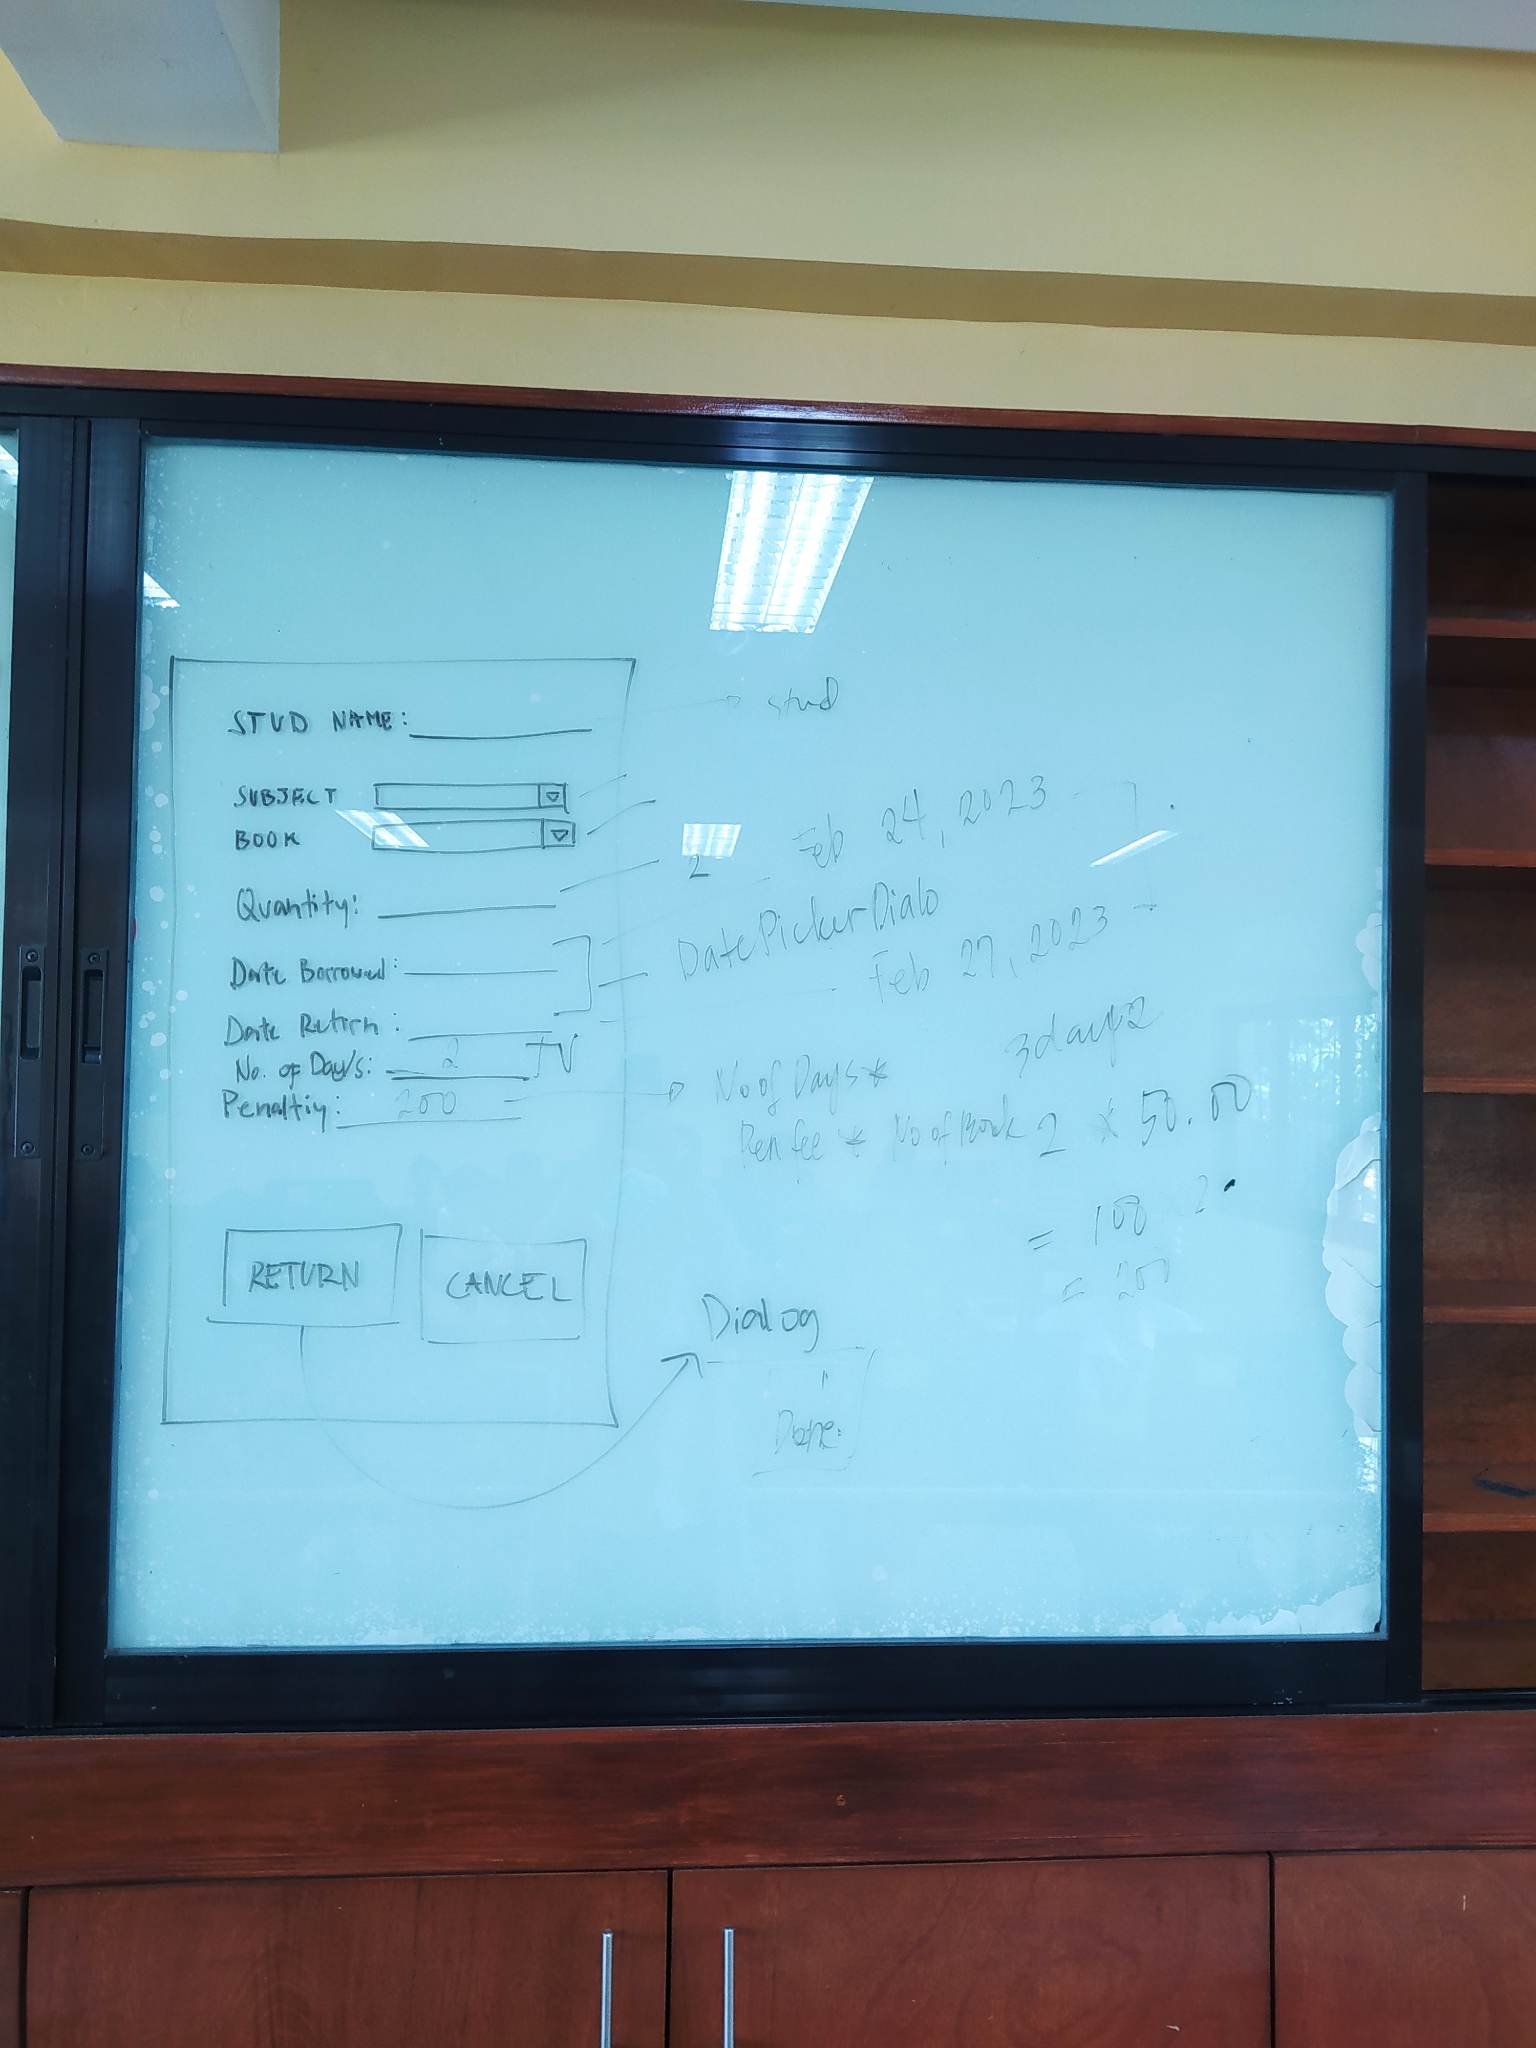 STUD NAME:
SUBJECT
BOOK
Quantity:
Date Borrowed:
Date Return:
No. of Days: 2 TV
Penaltiy: 200
RETURN
CANCEL
stud
2
Feb 24, 2023
DatePickerDialo
Feb 27, 2023
3days 2
No of Days *
fee * No of Book 2 * 50.00
= 100 2
= 200
Dialog